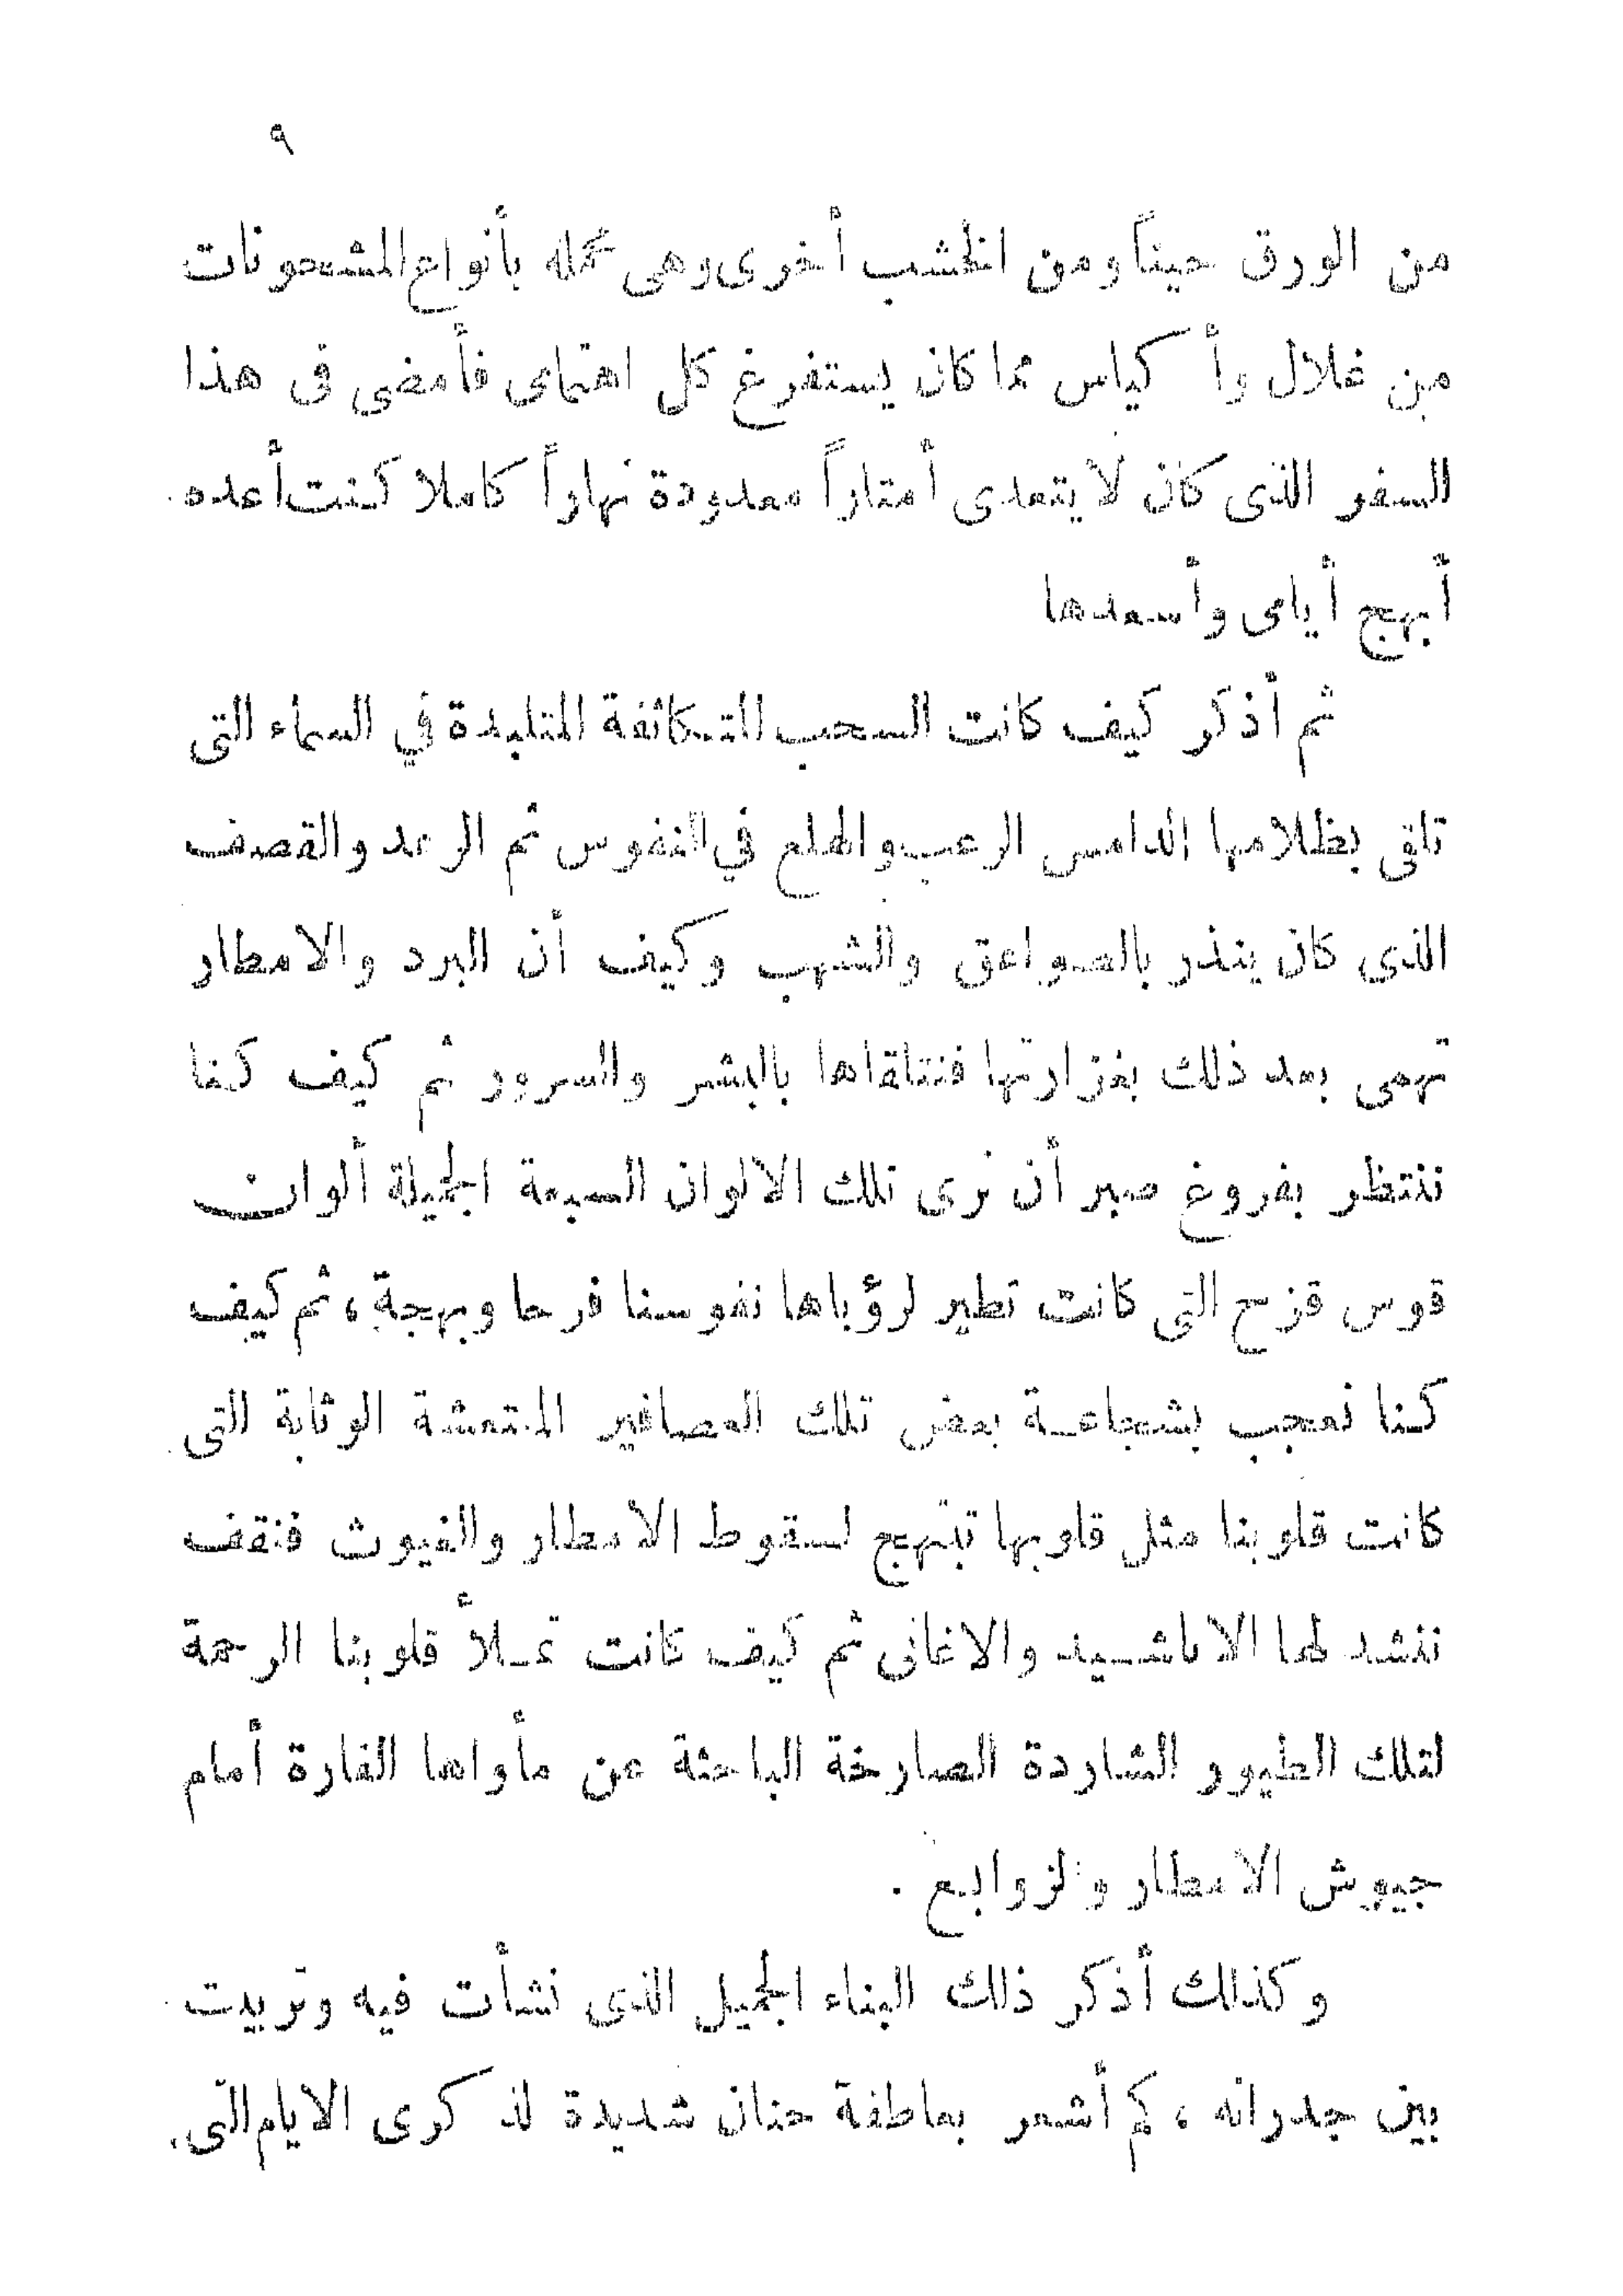 ٩
من الورق حيناً ومن الخشب أخرى وهى محملة بأنواع المشحونات
من غلال وأكياس مما كان يستفرغ كل اهتمامى فأمضى فى هذا
السفر الذى كان لا يتعدى أمتاراً معدودة نهاراً كاملا كنت أعده
أبهج أيامى وأسعدها
ثم أذكر كيف كانت السحب المتكاثفة المتلبدة في السماء التى
تلقى بظلامها الدامس الرعب والهلع في النفوس ثم الرعد والقصف
الذى كان ينذر بالصواعق والشهب وكيف أن البرد والامطار
تهمى بعد ذلك بغزارتها فنتلقاها بالبشر والسرور ثم كيف كنا
ننتظر بفروغ صبر أن نرى تلك الالوان السبعة الجميلة ألوان
قوس قزح التى كانت تطير لرؤياها نفوسنا فرحا وبهجة، ثم كيف
كنا نعجب بشجاعة بعض تلك العصافير المنتعشة الوثابة التى
كانت قلوبنا مثل قلوبها تبتهج لسقوط الامطار والغيوث فنقف
ننشد لها الاناشيد والاغانى ثم كيف كانت تملأ قلوبنا الرحمة
لتلك الطيور الشاردة الصارخة الباحثة عن مأواها الفارة أمام
جيوش الامطار والزوابع .
وكذلك أذكر ذلك البناء الجميل الذى نشأت فيه وتربيت
بين جدرانه ، كم أشعر بعاطفة حنان شديدة لذكرى الايام التى